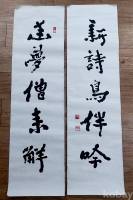 新詩鳥伴吟
幽夢僧來解
kobay